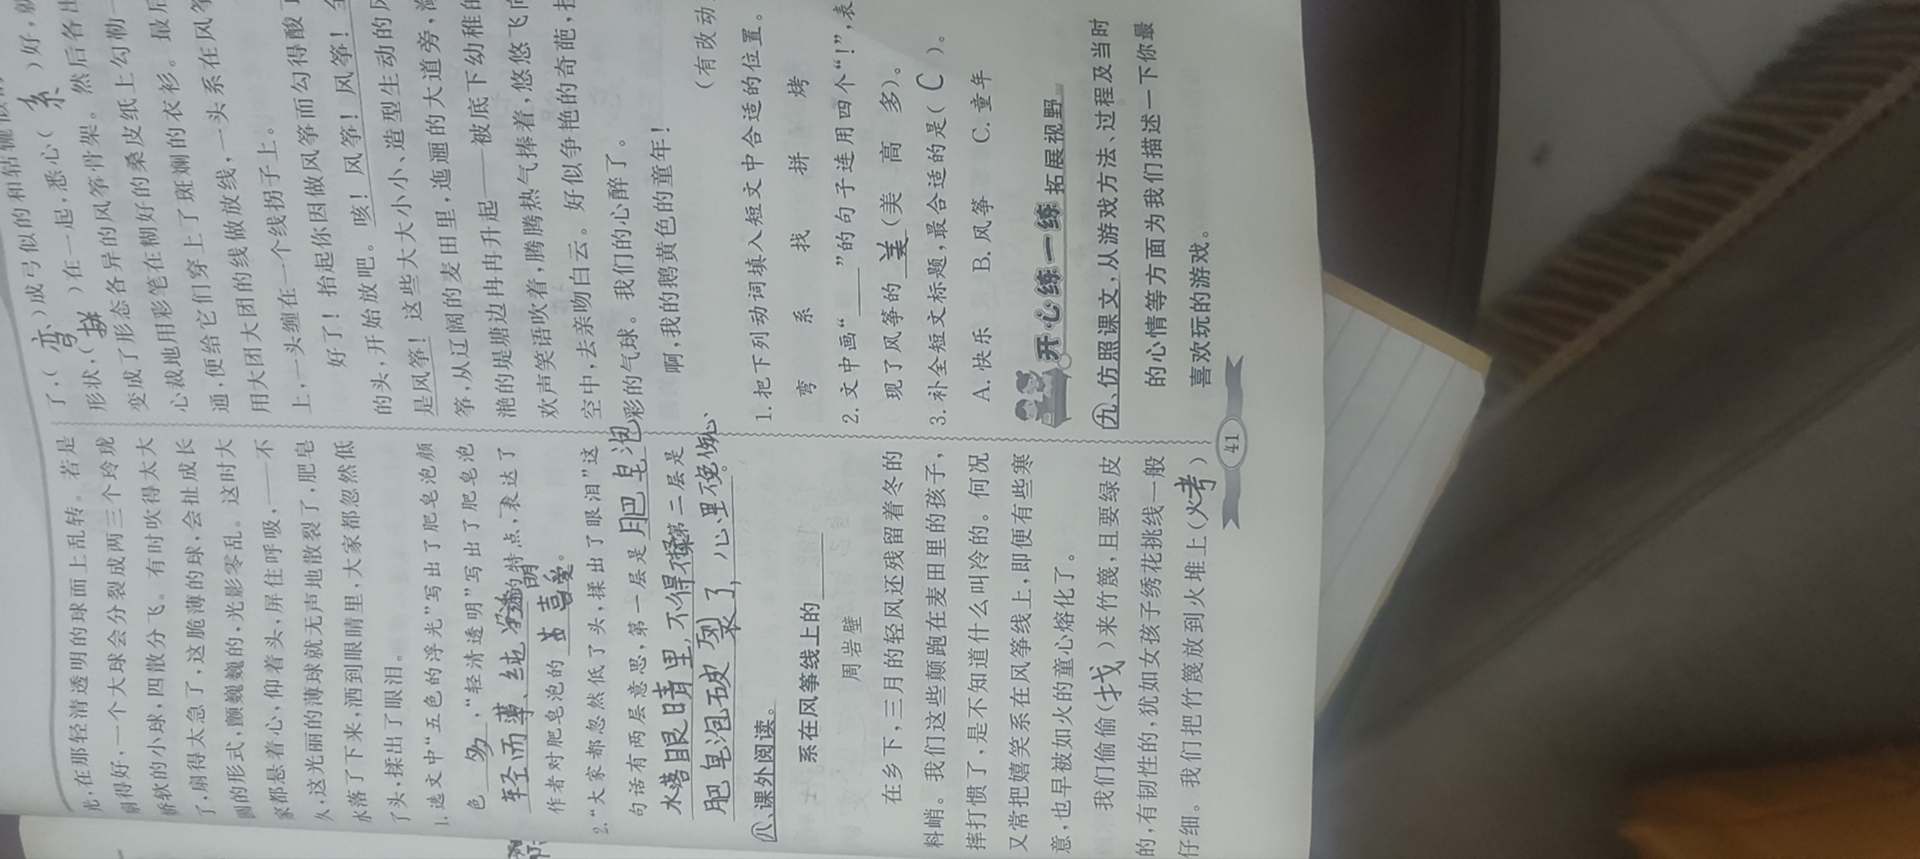 光,在那轻清透明的球面上乱转。若是
扇得好,一个大球会分裂成两三个玲珑
娇软的小球,四散分飞。有时吹得太大
了,扇得太急了,这脆薄的球,会扯成长
圆的形式,颤巍巍的,光影零乱。这时大
家都悬着心,仰着头,屏住呼吸,——不
久,这光丽的薄球就无声地散裂了,肥皂
水落了下来,洒到眼睛里,大家都忽然低
了头,揉出了眼泪。
1.选文中“五色的浮光”写出了肥皂泡颜
色 多 ,“轻清透明”写出了肥皂泡
轻而薄、纯净透明的特点,表达了
作者对肥皂泡的 喜爱。
2.“大家都忽然低了头,揉出了眼泪”这
句话有两层意思,第一层是 肥皂泡
水落眼睛里,不得不揉第二层是
肥皂泡破裂了,心里不免伤心。
八、课外阅读。
系在风筝线上的
周岩壁
在乡下,三月的轻风还残留着冬的
料峭。我们这些颠跑在麦田里的孩子,
摔打惯了,是不知道什么叫冷的。何况
又常把嬉笑系在风筝线上,即便有些寒
意,也早被如火的童心熔化了。
我们偷偷(找)来竹篾,且要绿皮
的,有韧性的,犹如女孩子绣花挑线一般
仔细。我们把竹篾放到火堆上(烤)
了,(弯)成弓似的和
形状,(拼)在一起,悉心(系)好,
变成了形态各异的风筝骨架。然后各
心裁地用彩笔在糊好的桑皮纸上勾勒一
通,便给它们穿上了斑斓的衣衫。最
用大团大团的线做放线,一头系在风
上,一头缠在一个线拐子上。
好了!抬起你因做风筝而勾得酸
的头,开始放吧。咳!风筝!风筝!
是风筝!这些大大小小、造型生动的
筝,从辽阔的麦田里,迤逦的大道旁,
滟的堤塘边冉冉升起——被底下幼稚
欢声笑语吹着,腾腾热气捧着,悠悠飞
空中,去亲吻白云。好似争艳的奇葩,
彩的气球。我们的心醉了。
啊,我的鹅黄色的童年!
(有改动
1.把下列动词填入短文中合适的位置。
弯 系 找 拼 烤
2.文中画“____”的句子连用四个“!”,表
现了风筝的 美 (美 高 多)。
3.补全短文标题,最合适的是( C )。
A.快乐 B.风筝 C.童年
开心练一练 拓展视野
九、仿照课文,从游戏方法、过程及当时
的心情等方面为我们描述一下你最
喜欢玩的游戏。
41